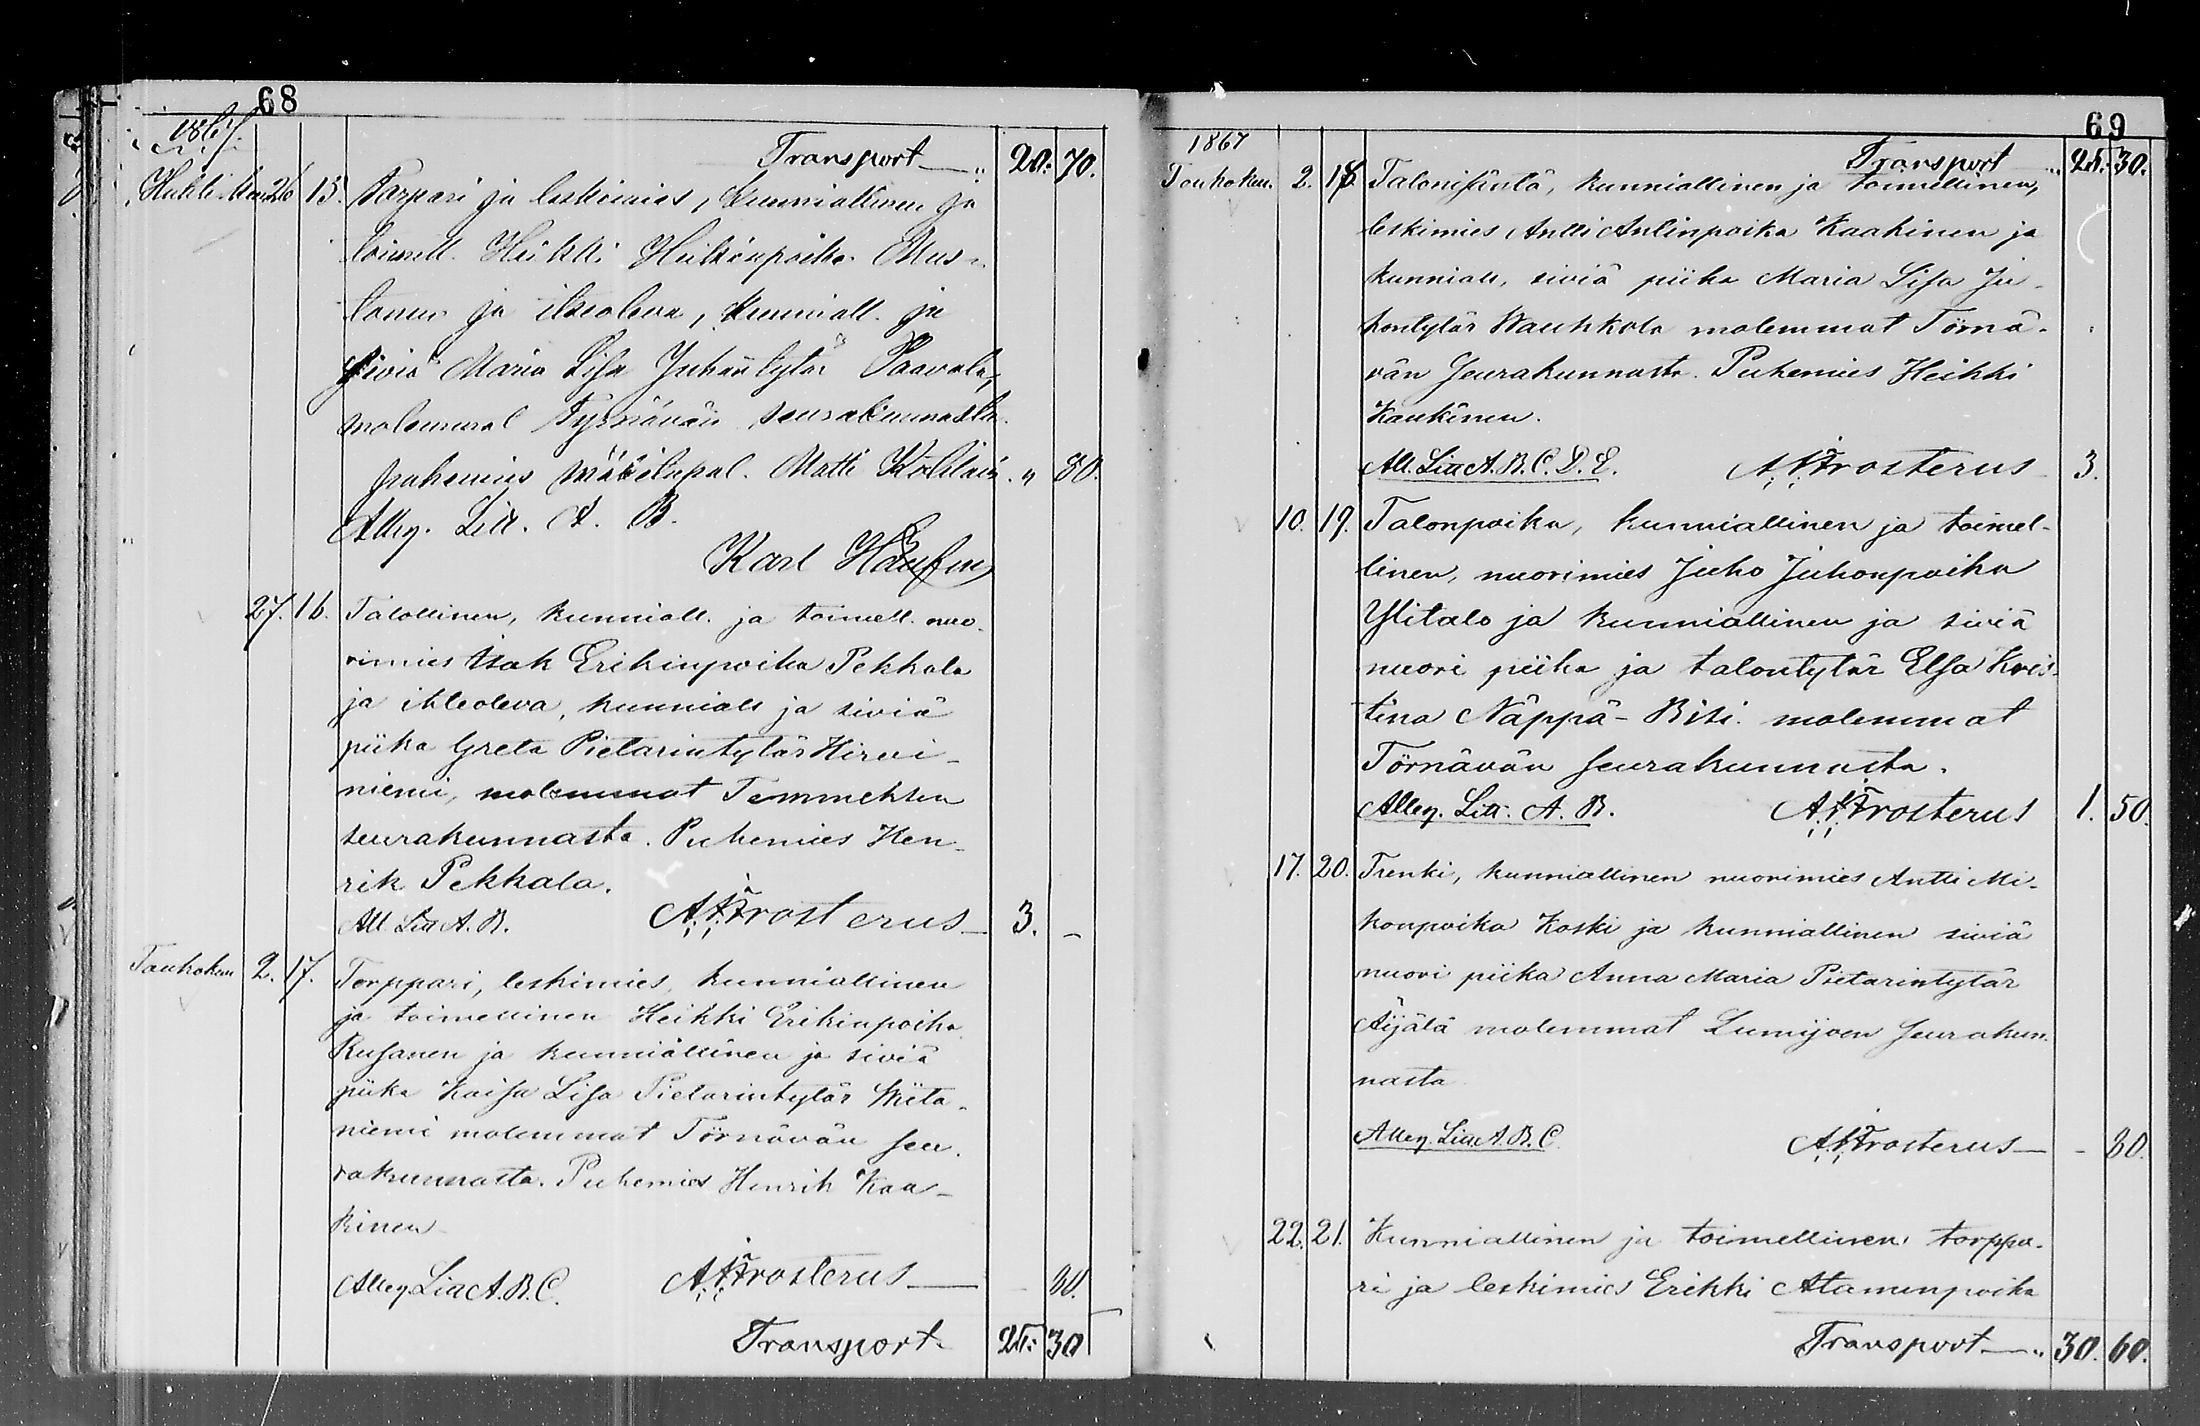 68
1867.
Transport — " 20. 70.
Huhti.kuu 26 15. Torpari ja leskimies, kunniallinen ja
toimell. Heikki Heikinpoika Mus-
tonen ja itseoleva, kunniall. ja
siviä Maria Lisa Juhontytär Paavola,
molemmat Tyrnävän seurakunnasta.
puhemies Matti " 80.
Alleg. Litt. A. B.
Karl
27. 16. Talollinen, kunniall. ja toimell. nuo-
rimies Isak Erikinpoika Pekkala
ja itseoleva, kunniall ja siviä
piika Greta Pietarintytär Hirvi-
niemi, molemmat Temmeksen
seurakunnasta. Puhemies Hen-
rik Pekkala.
All. Litt A. B. A. F. Frosterus — 3. -
Toukokuu 2. 17. Torppari, leskimies, kunniallinen
ja toimellinen Heikki Erikinpoika
Rusanen ja kunniallinen ja siviä
piika Kaisa Lisa Pietarintytär Wiita-
niemi molemmat Törnävän seu-
rakunnasta. Puhemies Henrik Kaa-
kinen
Alleg. Litt A. B. C. A. F. Frosterus — - 80.
Transport. 25. 30
69
1867
Transport " 25. 30.
Toukokuu. 2. 18. Talonisäntä, kunniallinen ja toimellinen,
leskimies Antti Antinpoika Kaakinen ja
kunniall. siviä piika Maria Lisa Ju-
hontytär Wauhkola molemmat Törnä-
vän seurakunnasta. Puhemies Heikki
Kaukinen.
All. Litt A. B. C. D. E. A. F. Frosterus 3.
10. 19. Talonpoika, kunniallinen ja toimel-
linen, nuorimies Juho Juhonpoika
Ylitalo ja kunniallinen ja siviä
nuori piika ja talontytär Elsa Kris-
tina Näppä-Risi. molemmat
Törnävän seurakunnasta.
Alleg. Litt. A. B. A. F. Frosterus 1. 50.
17. 20. Trenki, kunniallinen nuorimies Antti Mi-
konpoika Koski ja kunniallinen siviä
nuori piika Anna Maria Pietarintytär
Äijälä molemmat Lumijoen seurakun-
nasta
Alleg. Litt A. B. C. A. F. Frosterus — - 80.
22. 21. Kunniallinen ja toimellinen torppa-
ri ja leskimies Erikki Ataminpoika
Transport — " 30. 60.